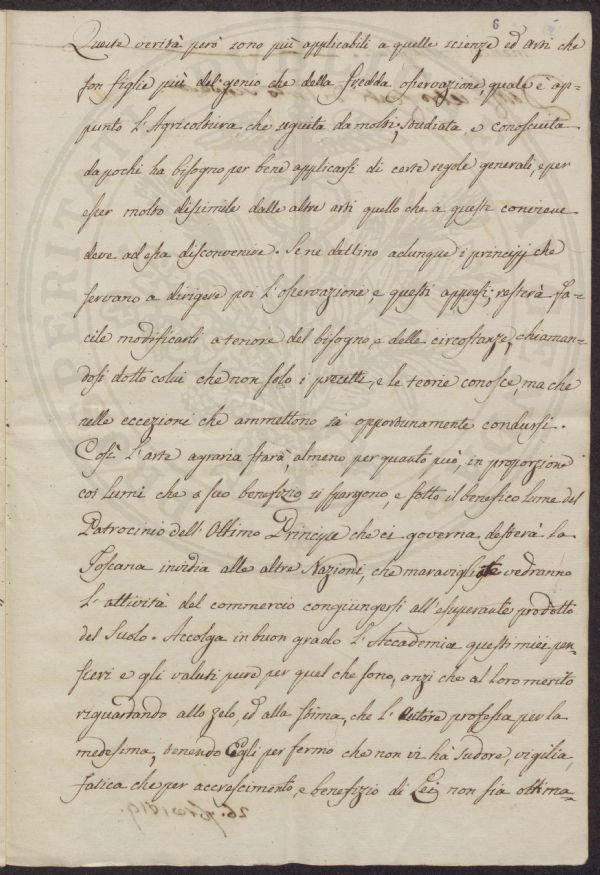 6
Queste verità però sono più applicabili a quelle scienze ed arti che
son figlie più del genio che della fredda osservazione, quale è ap=
punto l'Agricoltura che seguita da molti, studiata, e conosciuta
da pochi ha bisogno per bene applicarsi di certe regole generali, e per
esser molto dissimile dalle altre arti quello che a queste conviene
deve ad essa disconvenire. Se ne dettino adunque i principj che
servano a dirigere poi l'osservazione, e questi appresi; resterà fa=
cile modificarli a tenore del bisogno, e delle circostanze, chiaman=
dosi dotto colui che non solo i precetti, e le teorie conosce, ma che
nelle eccezioni che ammettono sà opportunamente condursi.
Così l'arte agraria starà, almeno per quanto può, in proporzione
coi lumi che a suo benefizio si spargono, e sotto il benefico lume del
Patrocinio dell'Ottimo Principe che ci governa desterà la
Toscana invidia alle altre Nazioni, che maravigliate vedranno
l'attività del commercio congiungersi all'esuperante prodotto
del Suolo. Accolga in buon grado l'Accademia questi miei pen=
sieri e gli valuti pure per quel che sono, anzi che al loro merito
riguardando allo zelo, ed alla stima, che l'Autore professa per la
medesima, tenendo Egli per fermo che non vi hà sudore, vigilia,
fatica che per accrescimento, e benefizio di Lei non sia ottima=